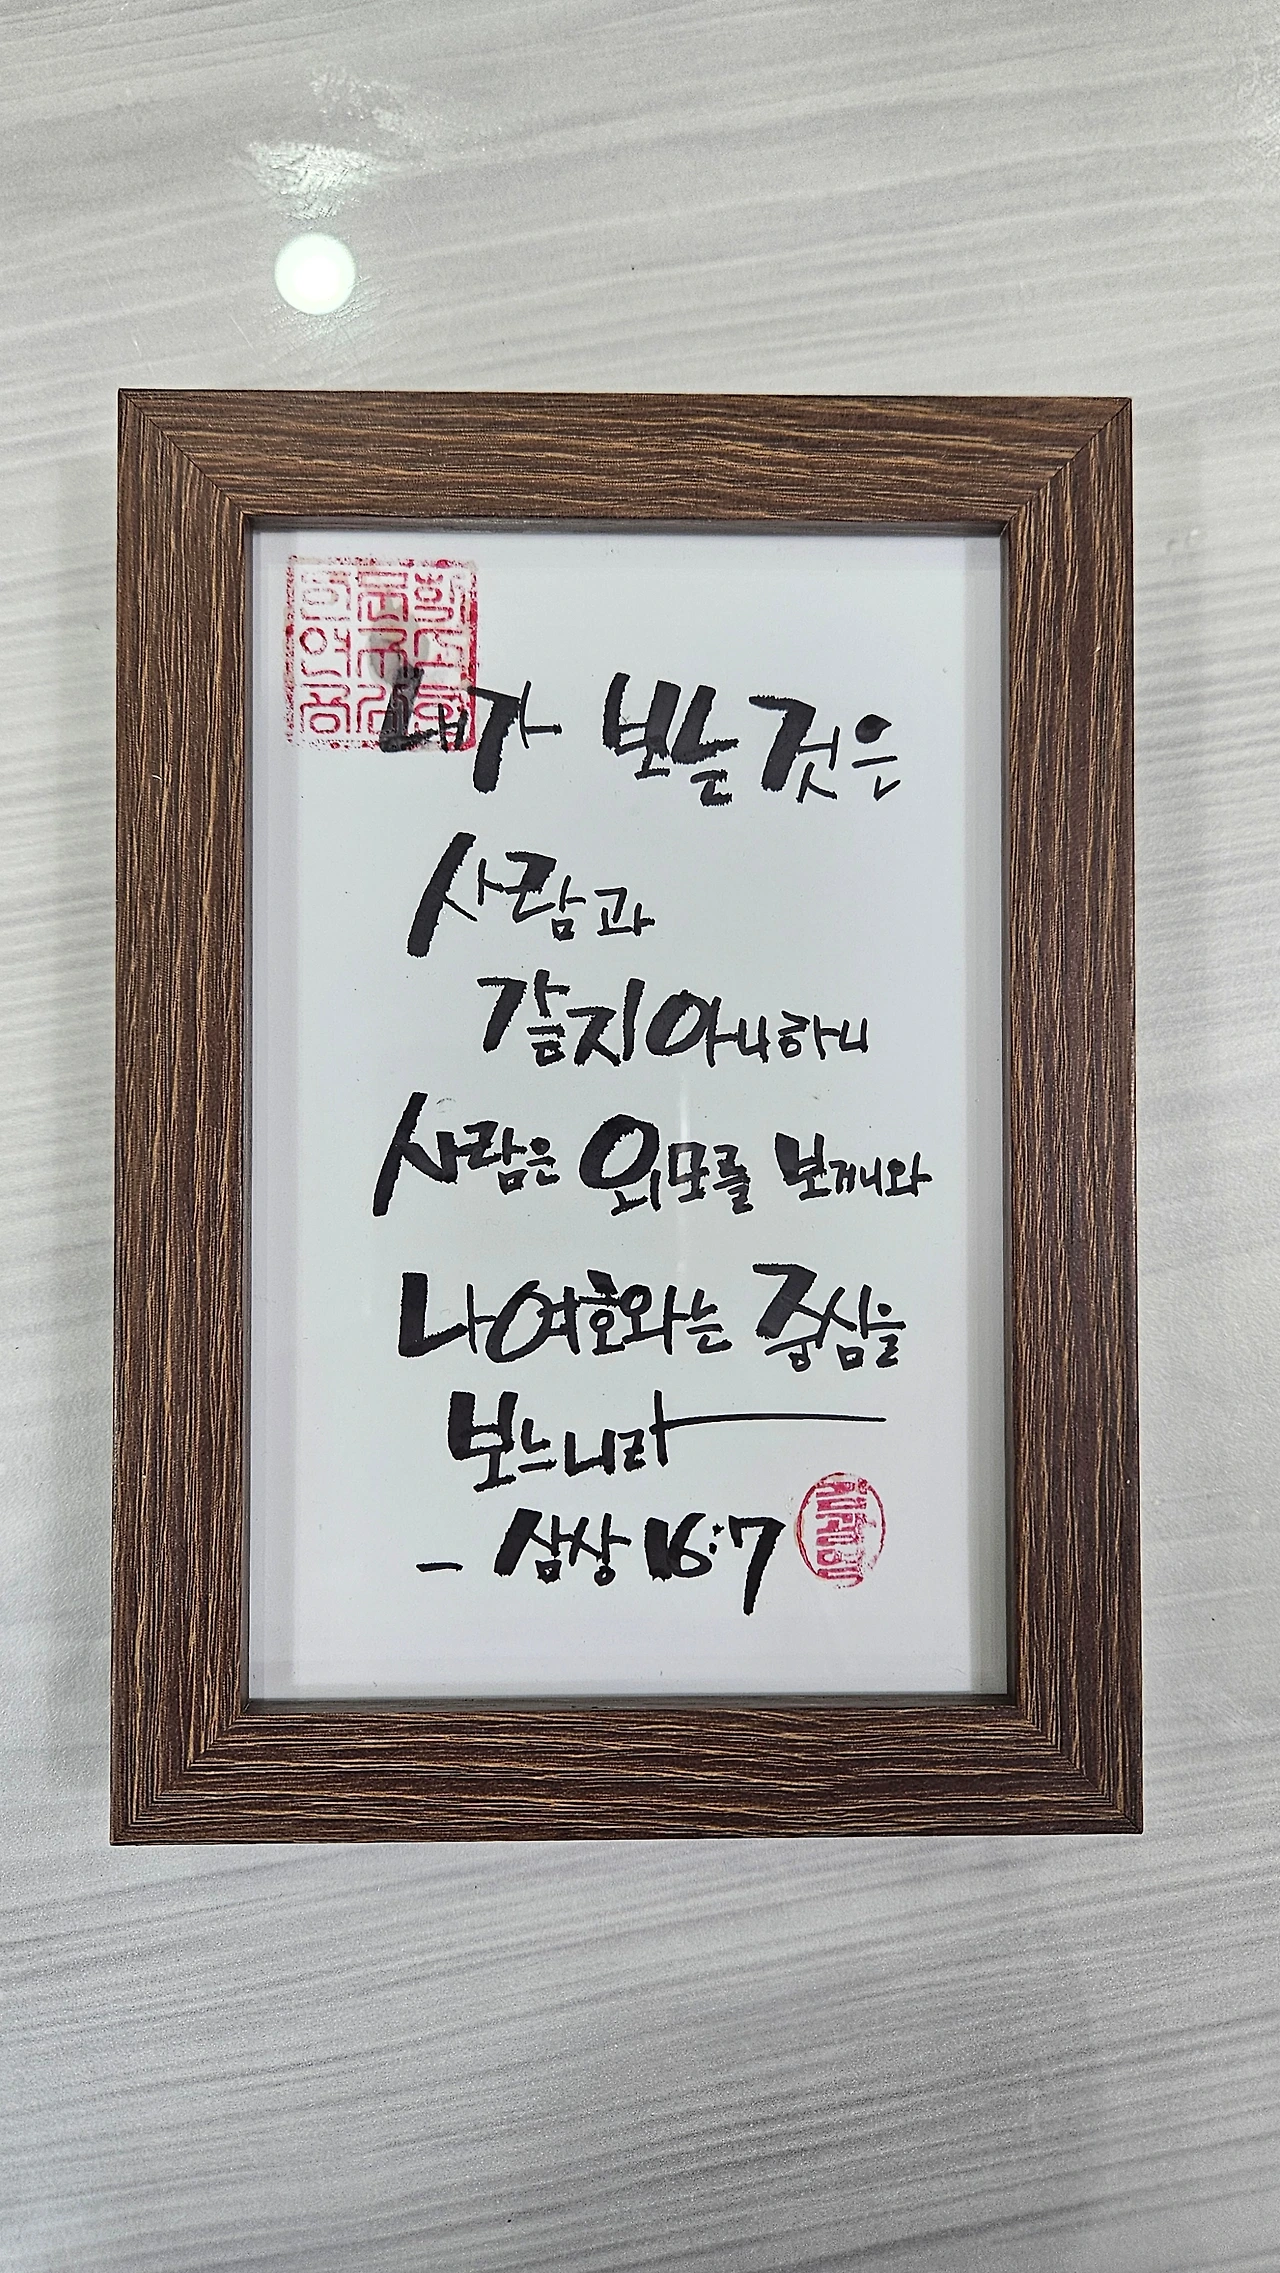 내가 보는것은
사람과
같지아니하니
사람은 외모를 보거니와
나여호와는 중심을
보느니라
- 삼상 16:7